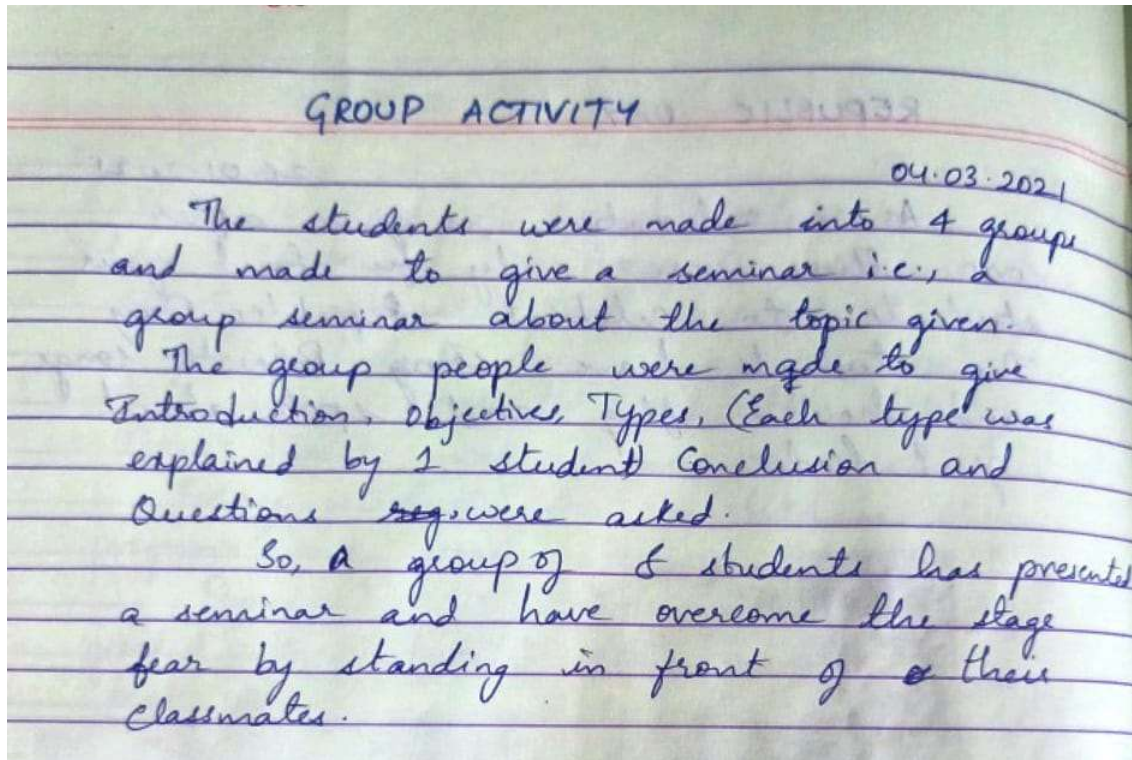 GROUP ACTIVITY
04.03.2021
The students were made into 4 groups
and made to give a seminar i.e., a
group seminar about the topic given.
The group people were made to give
Introduction, Objectives, Types, (Each type was
explained by 1 student) Conclusion and
Questions were asked.
So, a group of students has presented
a seminar and have overcome the stage
fear by standing in front of their
classmates.